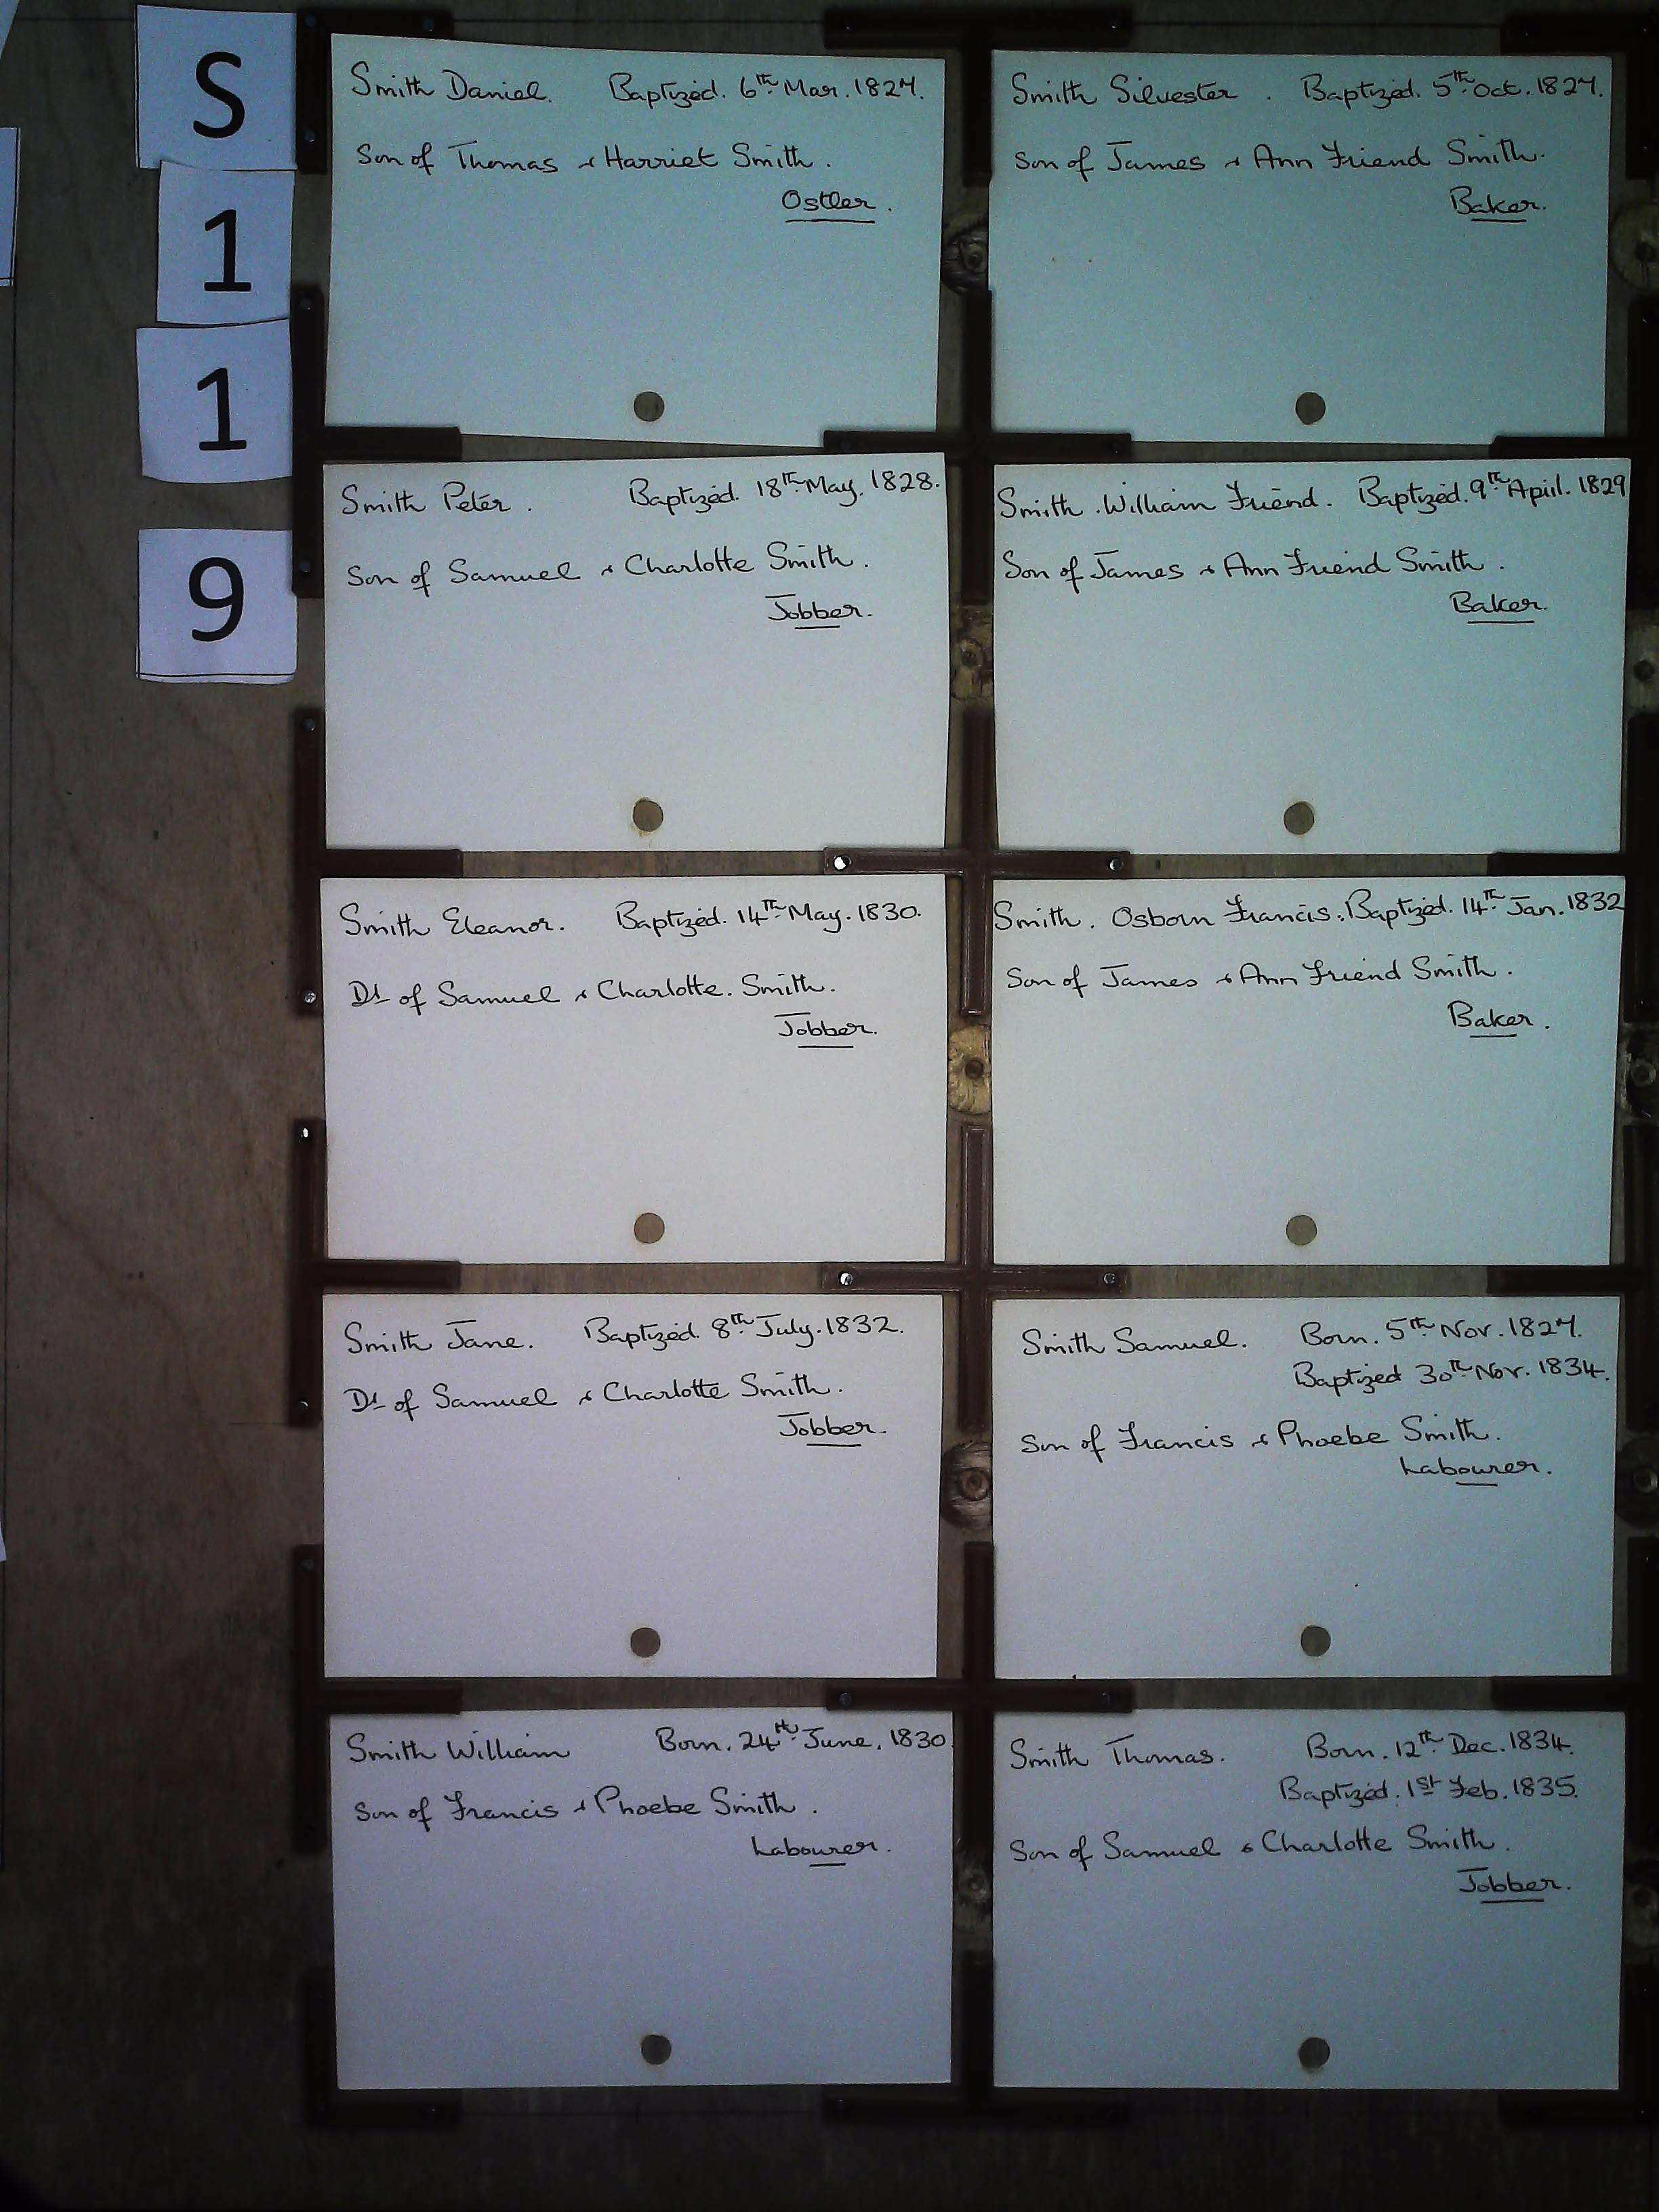 S
1
1
9
Smith Daniel. Baptized. 6th Mar. 1827.
Son of Thomas & Harriet Smith.
Ostler.
Smith Silvester. Baptized. 5th Oct. 1827.
Son of James & Ann Friend Smith.
Baker.
Smith Peter. Baptized. 18th May. 1828.
Son of Samuel & Charlotte Smith.
Jobber.
Smith. William Friend. Baptized. 9th April. 1829
Son of James & Ann Friend Smith.
Baker.
Smith Eleanor. Baptized. 14th May. 1830.
Dt of Samuel & Charlotte. Smith.
Jobber.
Smith. Osborn Francis. Baptized. 14th Jan. 1832
Son of James & Ann Friend Smith.
Baker.
Smith Jane. Baptized. 8th July. 1832.
Dt of Samuel & Charlotte Smith.
Jobber.
Smith Samuel. Born. 5th Nov. 1827.
Baptized 30th Nov. 1834.
Son of Francis & Phoebe Smith.
Labourer.
Smith William Born. 24th June. 1830.
Son of Francis & Phoebe Smith.
Labourer.
Smith Thomas. Born. 12th Dec. 1834.
Baptized. 1st Feb. 1835.
Son of Samuel & Charlotte Smith.
Jobber.